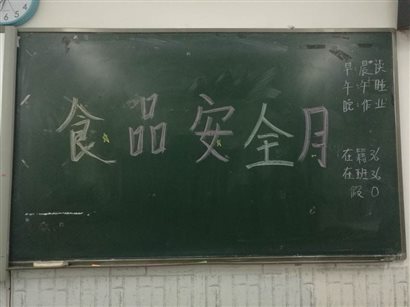 食品安全月
早:晨谈
午:午睡
晚:作业
在籍36
在班36
假0